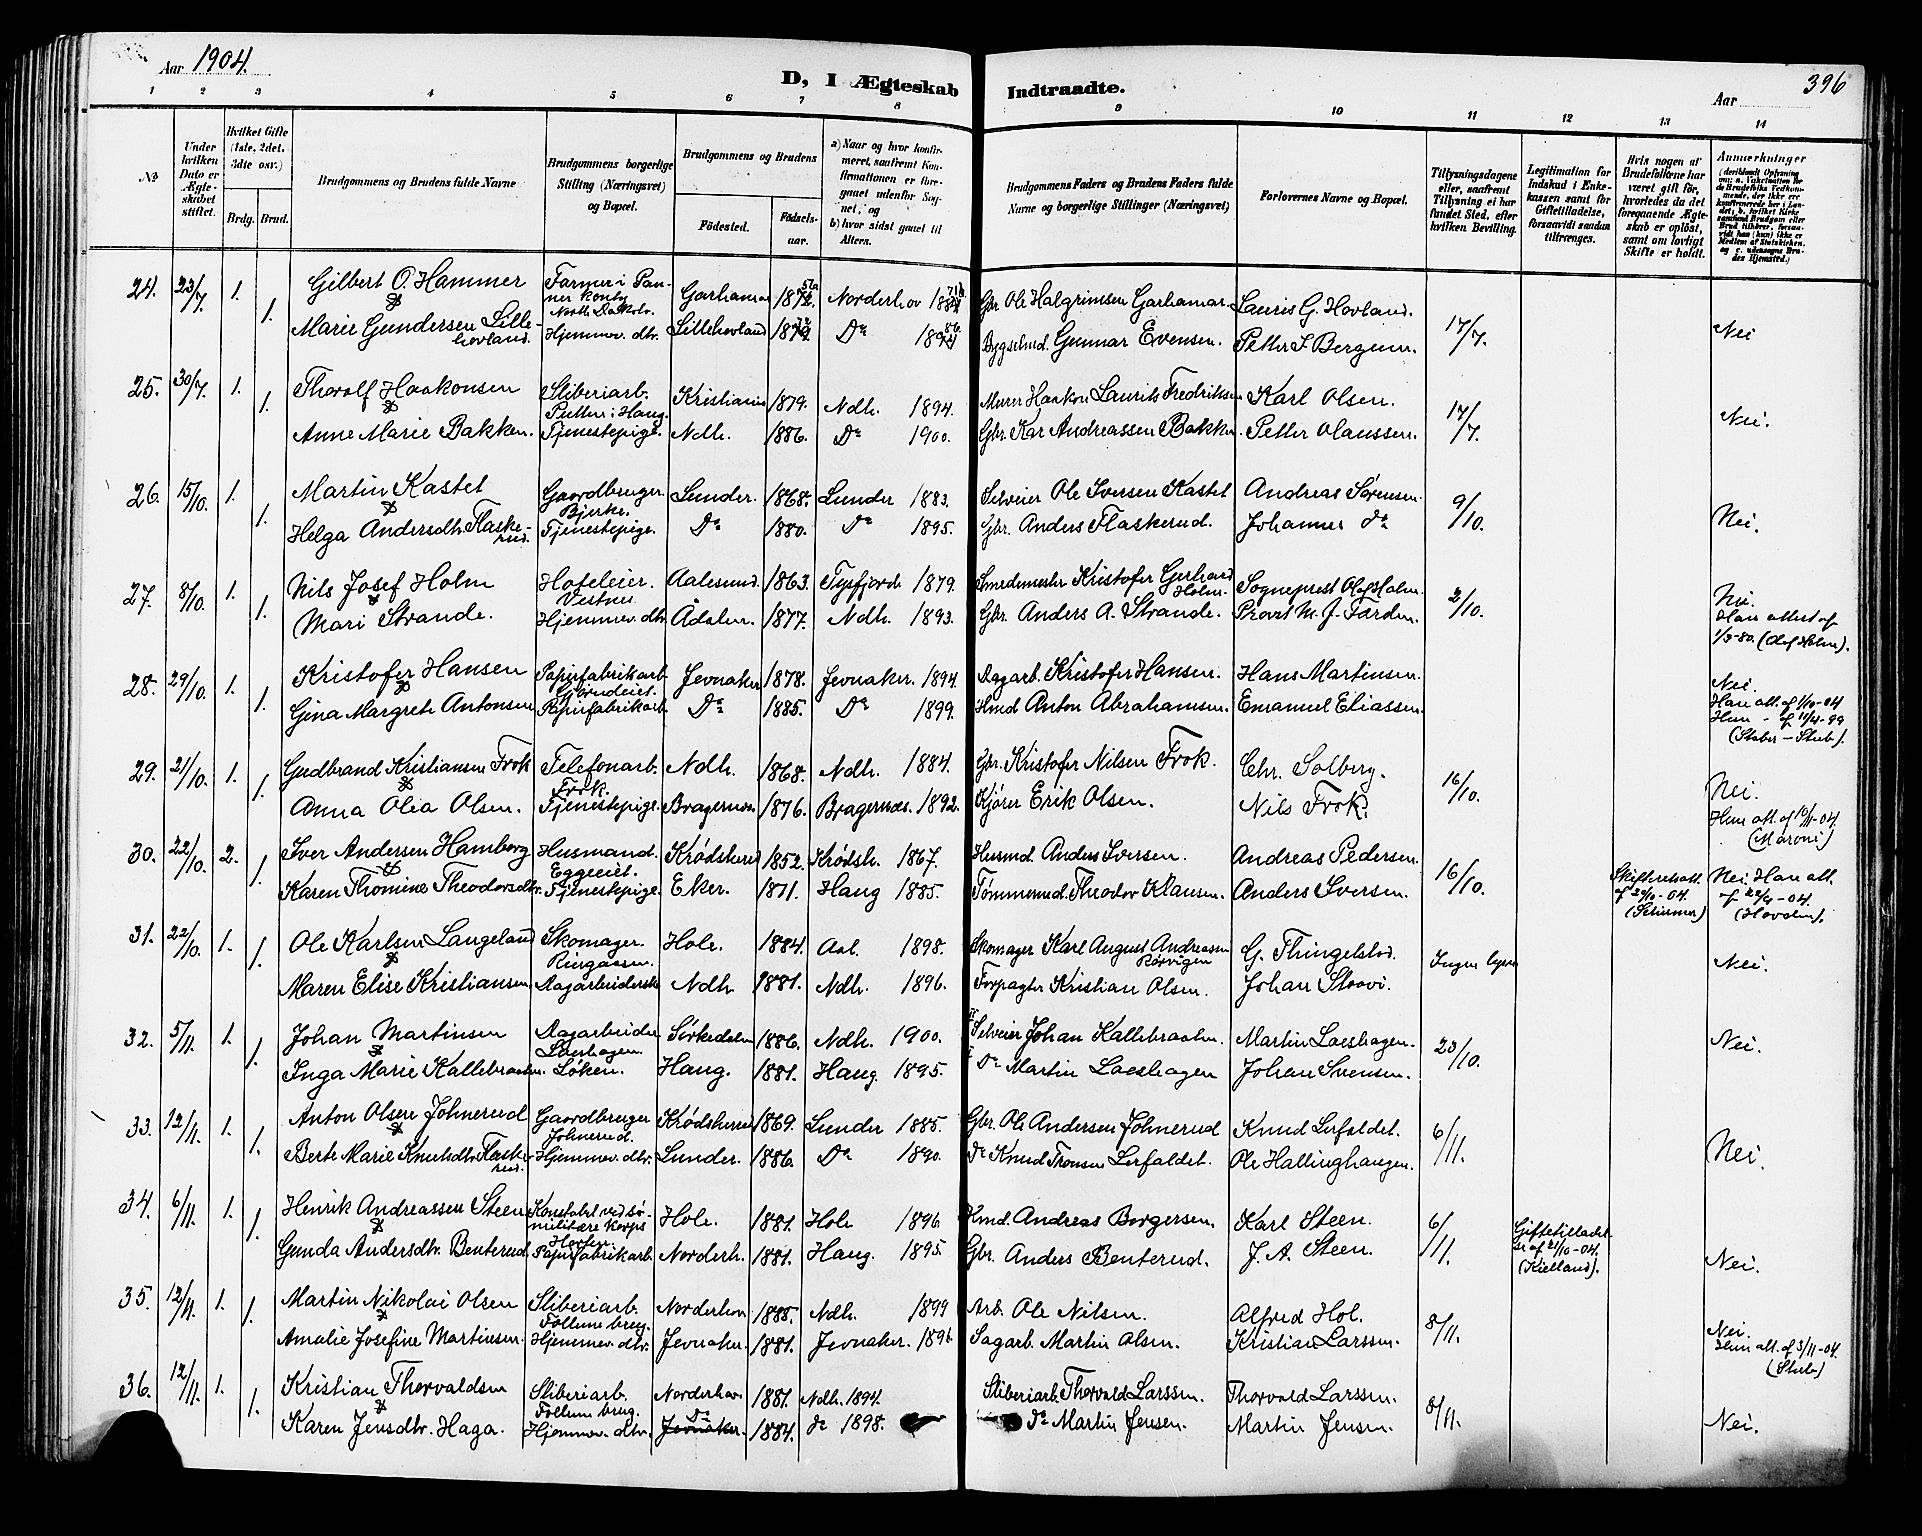 Aar 1904.
D, I Ægteskab Indtraadte.
Aar
396
1 2 3 4 5 6 7 8 9 10 11 12 13 14
№
Under hvilken Dato er Ægteskabet stiftet.
Hvilket Gifte (1ste, 2det, 3die osv.)
Brdg. Brud.
Brudgommens og Brudens fulde Navne
Brudgommens borgerlige Stilling (Næringsvei) og Bopæl.
Brudgommens og Brudens
Fødested. Fødselsaar.
a) Naar og hvor konfirmeret, saafremt Konfirmationen er foregaaet udenfor Sognet, og
b) hvor sidst gaaet til Alters.
Brudgommens Faders og Brudens Faders fulde Navne og borgerlige Stillinger (Næringsvei)
Forlovernes Navne og Bopæl.
Tillysningsdagene eller, saafremt Tillysning ei har fundet Sted, efter hvilken Bevilling.
Legitimation for Indskud i Enkekassen samt for Giftetilladelse, forsaavidt saadan tiltrænges.
Hvis nogen af Brudefolkene har været gift før, hvorledes da det foregaaende Ægteskab er opløst, samt om lovligt Skifte er holdt.
Anmerkninger
24. 23/7. 1. Gilbert O. Hammer Farmer i Garhamar Norderhov Gbr. Ole Halgrimsen Garhamar. Lauris G. Hovland. 17/7. Nei
1. Marie Gundersen Lillehovland. Hjemmev. dtr. Lillehovland Do Bygselmd. Gunnar Evensen. Petter J. Bergum.
25. 30/7. 1. Thorolf Haakonsen Sliberiarb. Kristiania 1879. Ndh. 1894. Murer Haakon Laurits Fredriksen Karl Olsen. 17/7. Nei.
1. Anne Marie Bakken. Tjenestepige. Ndh. 1886. Do 1900. Gbr. Kar Andreassen Bakken. Petter Olaussen.
26. 15/10. 1. Martin Kastet Gaardbruger Bjerke. Lunder. 1868. Lunder 1883. Selveier Ole Iversen Kastet Andreas Sørensen. 9/10. Nei.
1. Helga Andersdtr. Flaskerud. Tjenestepige. Do 1880. Do 1895. Gbr. Anders Flaskerud. Johannes do
27. 8/10. 1. Nils Josef Holm Hoteleier. Vestnes Aalesund. 1863. Tysfjord 1879. Smedemester Kristofer Gerhard Holm. Sogneprest Olaf Holm. 2/10. Nei.
1. Mari Strande. Hjemmev. dtr. Ådalen. 1877. Ndh. 1893. Gbr. Anders A. Strande. Provst M. J. Færden. Han attest af 1/3-80. (Olaf Holm).
28. 29/10. 1. Kristofer Hansen Papirfabrikarb. Jevnaker 1878. Jevnaker. 1894. Dagarb. Kristofer Hansen. Hans Martinsen. Nei.
1. Gina Margrete Antonsen Papirfabrikarb. Do 1885. Do 1899. Hmd Anton Abrahamsen. Emanuel Eliassen. Han att. af 1/10-04 Hun - af 11/4-99
29. 21/10. 1. Gudbrand Kristiansen Frok Telefonarb. Frok. Ndh. 1868. Ndh. 1884. Gbr. Kristofer Nilsen Frok. Chr. Solberg. 16/10. Nei.
1. Anna Olia Olsen. Tjenestepige. Bragernes 1876. Bragernæs. 1892. Kjører Erik Olsen. Nils Frok.
30. 22/10. 2. Iver Andersen Hamborg Husmand. Eggeeiet. Krødsherad 1852. Krødsh. 1867. Husmd. Anders Iversen. Andreas Pedersen. 16/10. Skifteretsatt. Nei. Han att. af 22/4-04.
1. Karen Thomine Theodorsdtr. Tjenestepige. Eker. 1871. Haug 1885. Tømmermd. Theodor Klausen. Anders Iversen. (Schirmer) (Hovden).
31. 22/10. 1. Ole Karlsen Langeland Skomager. Ringaasen. Hole. 1884. Aal. 1898. Skomager Karl August Andreasen Rørvigen G. Thingelstad. Ingen lysn Nei.
1. Maren Elise Kristiansen Dagarbeiderske Ndh. 1881. Ndh. 1896. Forpagter Kristian Olsen. Johan Stoovi.
32. 5/11. 1. Johan Martinsen Dagarbeider Laeshagen. Sørkedalen 1886. Ndh. 1900. Selveier Johan Kallebraaten. Martin Laeshagen. 23/10. Nei.
1. Inga Marie Kallebraaten. Løken. Haug. 1881. Haug. 1895. Do Martin Laeshagen Johan Svensen.
33. 12/11. 1. Anton Olsen Johnerud Gaardbruger Johnerud. Krødsherad 1869. Lunder 1885. Gbr. Ole Andersen Johnerud Knud Lerfaldet. 6/11. Nei.
1. Berte Marie Knutsdtr. Flaskerud. Hjemmev. dtr. Lunder. 1886. Do 1890. Do Knud Tronsen Lerfaldet. Ole Hallinghaugen.
34. 6/11. 1. Henrik Andreassen Steen Konstabel ved sømilitære korps Horten. Hole. 1881. Hole 1896. Hmd. Andreas Borgersen. Karl Steen. 6/11. Giftetilladelse af 21/10-04. (Kielland). Nei.
1. Gunda Andersdtr. Benterud. Papirfabrikarb. Norderh. 1881. Haug. 1895. Gbr. Anders Benterud. J. A. Steen.
35. 12/11. 1. Martin Nikolai Olsen Sliberiarb. Follum brug. Norderhov 1885. Ndh. 1899 Arb. Ole Nilsen. Alfred Hol. 8/11. Nei.
1. Amalie Josefine Martinsen. Hjemmev. dtr. Jevnaker. 1881. Jevnaker. 1896 Sagarb. Martin Olsen. Kristian Larssen. Hun att. af 3/11-04. (Stub)
36. 12/11. 1. Kristian Thorvaldsen Sliberiarb. Follum brug. Norderhov 1881. Ndh. 1894. Sliberiarb. Thorvald Larssen. Thorvald Larssen. 8/11. Nei.
1. Karen Jensdtr. Haga. Hjemmev. dtr. Do Jevnaker. 1884. do 1898. do Martin Jensen. Martin Jensen.